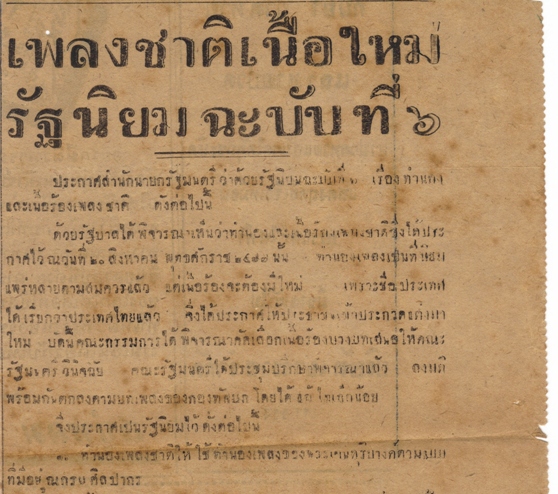 เพลงชาติเนื้อใหม่
รัฐนิยม ฉะบับที่ ๖
ประกาศสำนักนายกรัฐมนตรี ว่าด้วยรัฐนิยมฉะบับที่ ๖ เรื่อง ทำนอง
และเนื้อร้องเพลงชาติ ดังต่อไปนี้
ด้วยรัฐบาลได้พิจารณาเห็นว่าทำนองและเนื้อร้องเพลงชาติซึ่งได้ประ
กาศไว้ ณวันที่ ๒๐ สิงหาคม พุทธศักราช ๒๔๗๗ นั้น ทำนองเพลงเป็นที่นิยม
แพร่หลายตามสมควรแล้ว แต่เนื้อร้องจะต้องมีใหม่ เพราะชื่อประเทศ
ได้เรียกว่าประเทศไทยแล้ว จึงได้ประกาศให้ประชาชนเข้าประกวดแต่งมา
ใหม่ บัดนี้คณะกรรมการได้พิจารณาคัดเลือกเนื้อร้องบางบทเสนอให้คณะ
รัฐมนตรีวินิจฉัย คณะรัฐมนตรีได้ประชุมปรึกษาพิจารณาแล้ว ลงมติ
พร้อมกันตกลงตามบทเพลงของกองทัพบก โดยได้แก้ไขเล็กน้อย
จึงประกาศเป็นรัฐนิยมไว้ ดังต่อไปนี้
๑. ทำนองเพลงชาติให้ใช้ทำนองเพลงของพระเจนดุริยางค์ตามแบบ
ที่มีอยู่ ณกรมศิลปากร